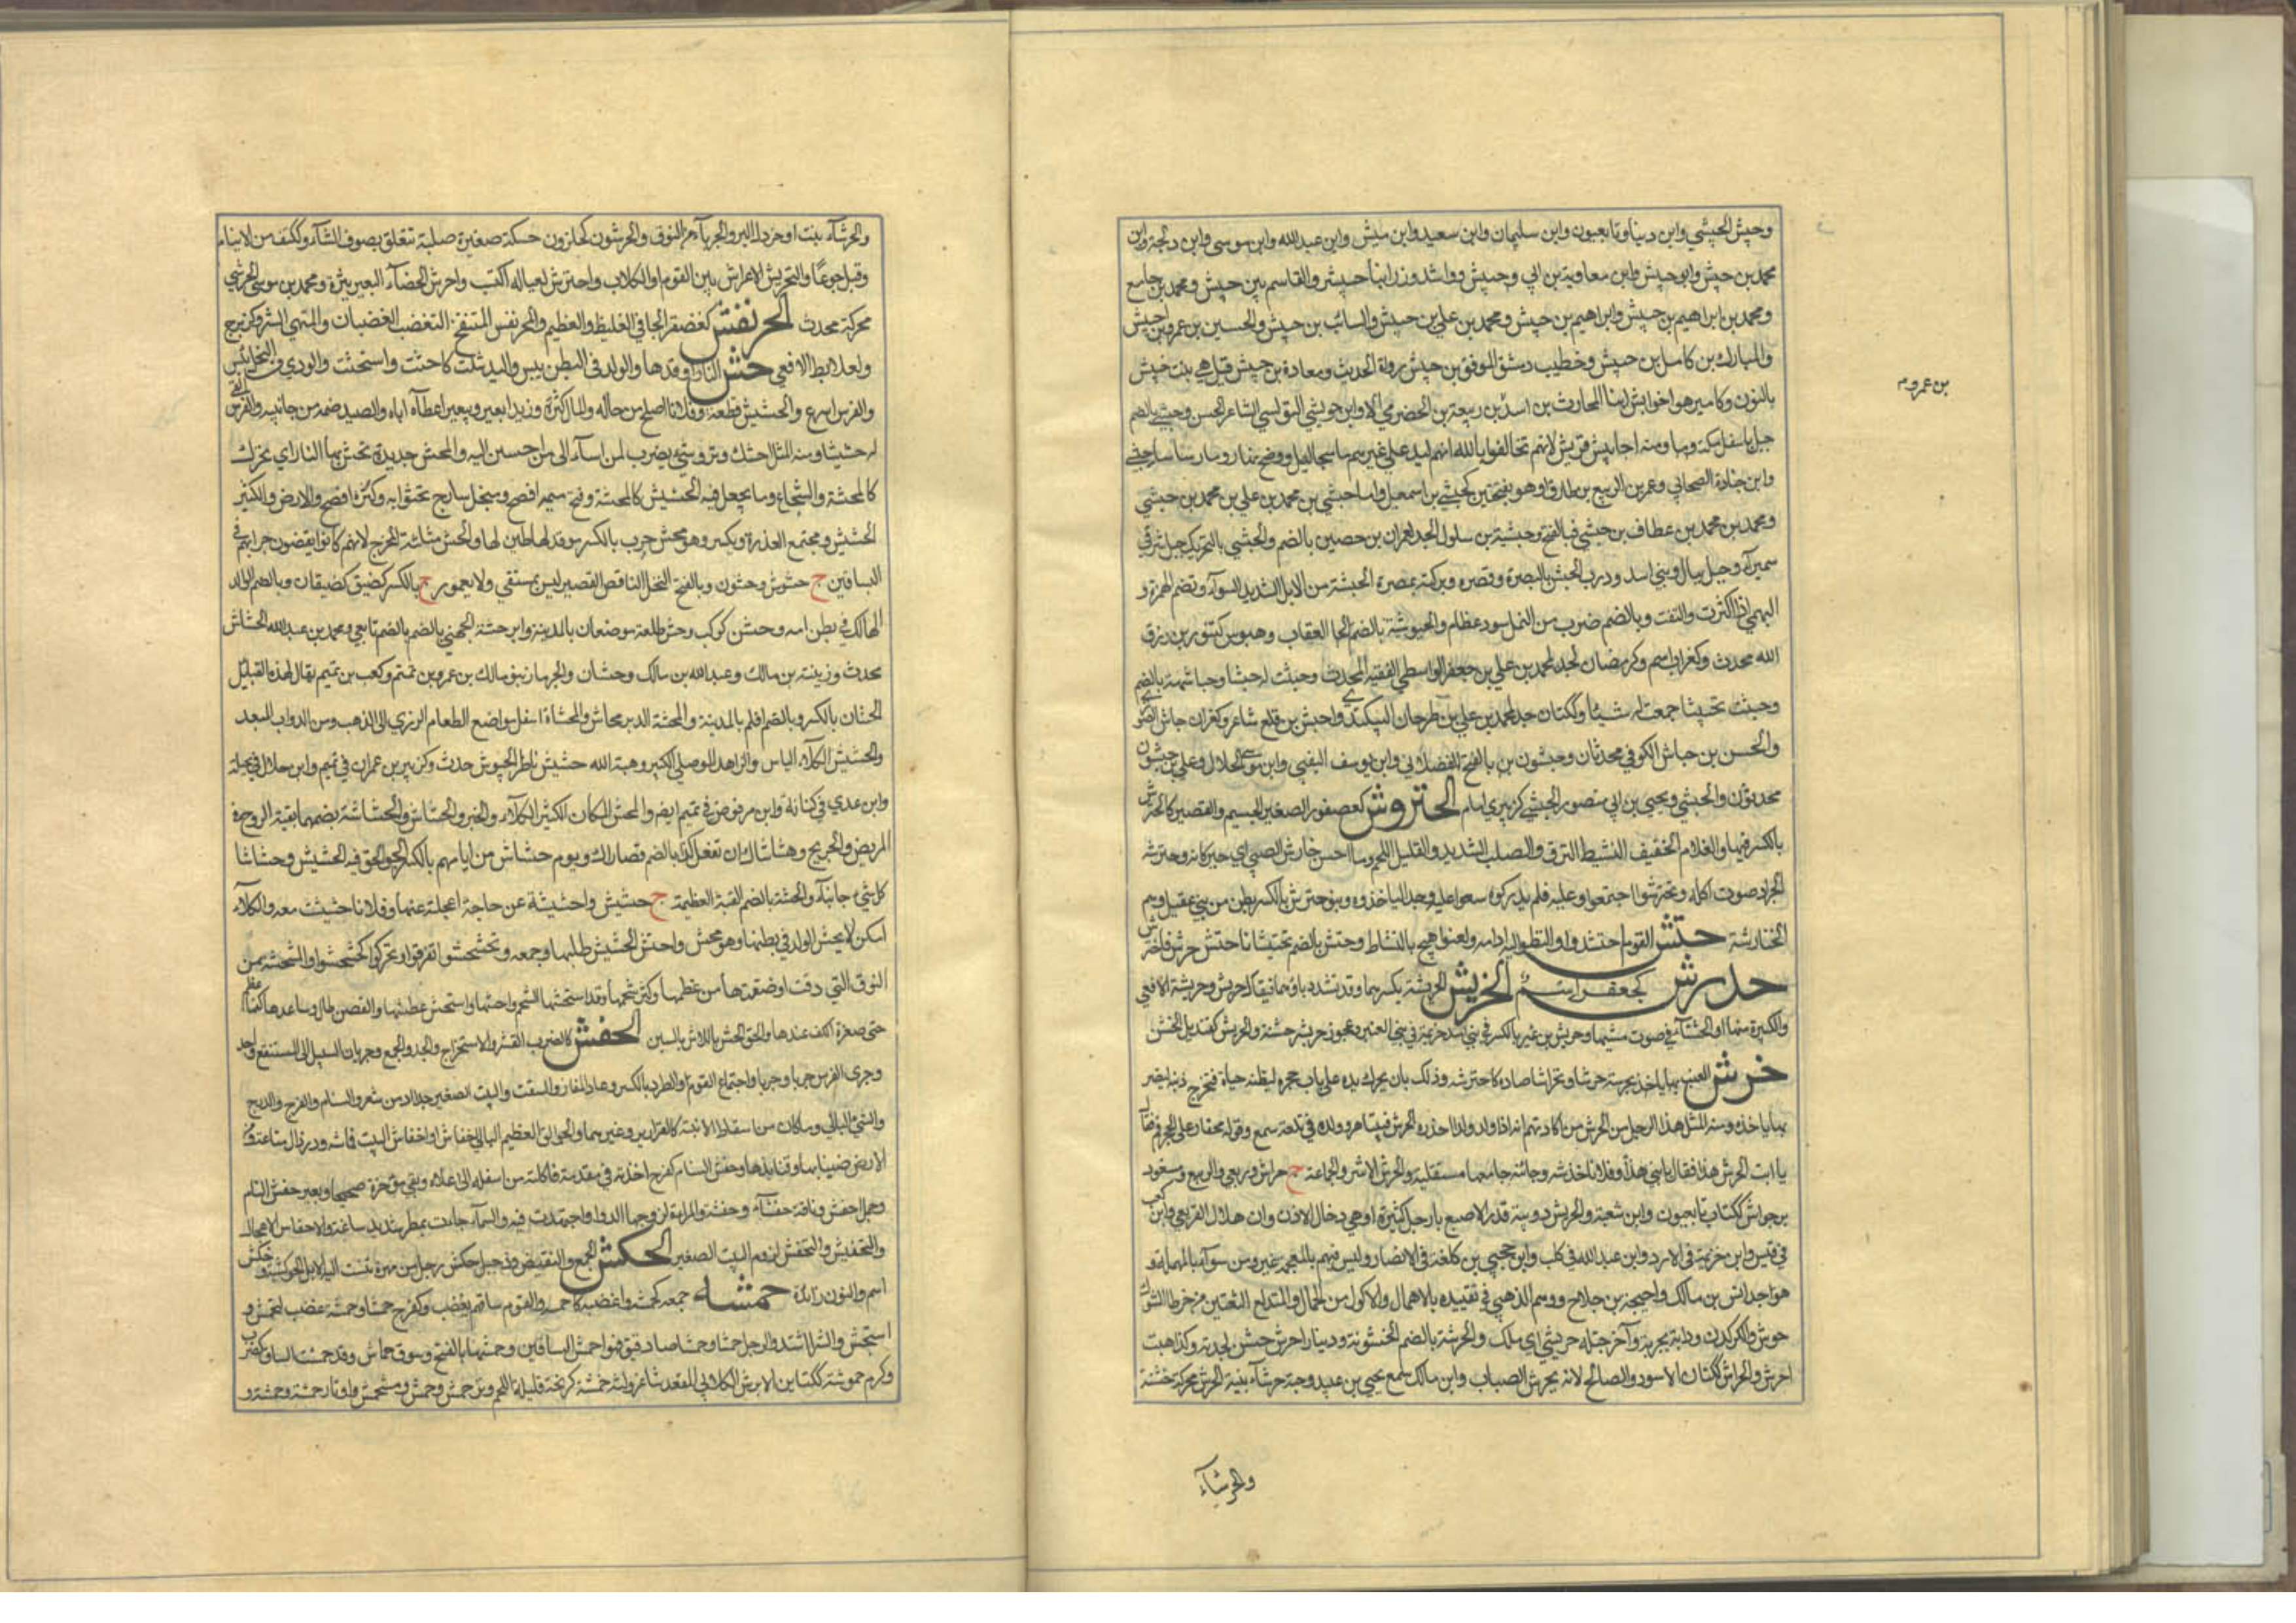 وحبيش الحبشي وابن دينار تابعيون وابن سليمان وابن سعيد وابن مبشر وابن عبدالله وابن موسى وابن دلجة وابن
محمد بن حبيش وابو حبيش وابن معاوية بن ابي وحبيش وراشد وزر ابنا حبيش والقاسم بن حبيش ومحمد بن جامع
ومحمد بن ابراهيم بن حبيش وابراهيم بن حبيش ومحمد بن علي بن حبيش والسائب بن حبيش والحسين بن عمر بن حبيش
والمبارك بن كامل بن حبيش وخطيب دمشق الموفق بن حبيش رواة الحديث ومعاذة بن حبيش قيل هي بنت حنيش
بن عمرو م
بالنون وكامير هو اخو ابنا الحارث بن اسد بن ربيعة بن الحضرمي الاوابن حوبشي التونسي الشاعر المحسن وحبشي بالضم
جبل باسفل مكة ومنه احابيش قريش لانهم تحالفوا بالله انهم ليد على غيرهم ما سجا ليل ووضح نهار وما رسا حبشي
وابن جنادة الصحابي وعمر بن الربيع بن طارق وهو بفتحتين كحبشي بن اسمعيل واما حبشي بن محمد بن علي بن محمد بن حبشي
ومحمد بن محمد بن عطاف بن حبشي فبالفتح وحبشية بن سلول الجد لعمران بن حصين بالضم والحبشي بالتحريك جبل شرقي
سميرآء وجبل ببلاد بني اسد ودرب الحبش بالبصرة وقصره وبركته بمصر الحبشة من الابل الشديد السوآء وتضم الهمزة و
البهمى اذا كثرت والتفت وبالضم ضرب من النمل سود عظام والحبوشة بالضم الجما العقاب وهبوس كتنور بن رزق
الله محدث وكغراب اسم وكرمضان لجد لمحمد بن علي بن جعفر الواسطي الفقيه المحدث وحبشت له حبشا وحباشة بالضم
وحبشت تحبيشا جمعت له شيئا وككتان جد لمحمد بن علي بن طرخان البيكندي واحبش بن قلع شاعر وكغراب حباش الصوري
والحسن بن حباش الكوفي محدثان وحبشون بن بالفتح الفضلاني وابن يوسف النصيبي وابن موسى الخلال وعلي بن حبشون
محدثون والحبشي ويحيى بن ابي منصور الحبشي كزبيري امام الحتروش كعصفور الصغير الجسم والقصير كالحترش
بالكسر فيهما والغلام الخفيف النشيط النزق والصلب الشديد والقليل اللحم وما احسن حتارش الصبي اي حركاته وحترشة
الجراد صوت اكله وتحترشوا اجتمعوا وعليه فلم يدركوه سعوا عليه وجدوا لياخذوه وبنو حترش بالكسر بطن من بني عقيل وهم
الحتارشة حتش القوم احتشدوا والنظر اليه ادامه ولعنوا هيج بالنشاط وحتش بالضم تحتيشا فاحتتش حرش فاحترش
حدرش كجعفر اسم الحربش الحربشة بكسرهما وقد تشدد باؤهما فيقال حربش وحربشة الافعى
والكبيرة منها او الخشنآء في صوت مشيها وحربش بن نمير بالكسر في بني اسد خزيمة وفي بني العنبر وعجوز حربش خشنة والحربيش كقنديل الخشن
حرش الضب يحرشه حرشا وتحراشا صاده كاحترشه وذلك بان يحرك يده على باب جحره ليظنه حية فيخرج ذنبه ليضربـ
بها ياخذه ومنه المثل هذا اجل من الحرش من اكاذيبهم انه اذا ولد ولدا حذره الحرش فبينا هو وولده في تلعة سمع وقع محفار على الجحر فقال
يا ابت الحرش هذا فقال يا بني هذا وفلانا خدشه وجاريته جامعها مستلقية والحرش الاثر والجماعة ج حراش وربعي والربيع ومسعود
بن حراش ككتاب تابعيون وابن شعبة والحريش دويبة قدر الاصبع بارجل كثيرة او هي دخال الاذن وابن هلال القريعي وابن كعب
في قيس وابن خزيمة في الازد وابن عبدالله في كلب وابن جحجبى بن كلفة في الانصار وليس فيهم بالمعجمة غيره ومن سواه بالمهملة
هو اجد انس بن مالك واحيحة بن جلاح ووهم الذهبي في تقييده بالاهمال والاكول من الجمال والمتدلع الشفتين من خرط الشوك
حرش والكركدن ودابة بحرية وآخر جبله حريشي اي ملك والحرشة بالضم الخشونة ودينار احرش خشن لجدته وكذا ضب
احرش والحراش ككتان الاسود والصالخ لانه يحرش الضباب وابن مالك سمع يحيى بن عبيد وحية حرشآء بينة الحرش محركة خشنة
والحرشآء
والحرشآء نبت او خردل البر والجربآء من النوق والحرشون كحلزون حسكة صغيرة صلبة تتعلق بصوف الشآء وككتف من لا ينام
وقيل جوعًا والتحريش الاغرآء بين القوم او الكلاب واحترش لعياله اكتسب واحرش الهنآء البعير بثره ومحمد بن موسى الحرشي
محركة محدث الحرنفش كغضنفر الجافي الغليظ والعظيم والمحرنفش المنتفخ المتغضب الغضبان والمتهيئ للشر وكزبرج
ولعلابط الافعى حش النار اوقدها والولد في البطن يبس واليد شلت كاحشت واستحشت والودي من النخل يبس
والفرس اسرع والحشيش قطعه وفلانا اصلح من حاله والمال كثره وزيدا بعيرا وببعير اعطاه اياه والصيد ضمه من جانبيه والفرس القى
له حشيشا ومنه المثل احشك وتروثني يضرب لمن اسآء الى من احسن اليه والمحش حديدة تحش بها النار اي تحرك
كالمحشة والشجاع وما يجعل فيه الحشيش كالمحشة وفتح ميمه افصح ومنجل ساذج تحش به وكسره افصح والارض والكثير
الحشيش ومجتمع العذرة ويكسر وهو محش حرب بالكسر موقد لها طبن لها والحش مثلثة المخرج لانهم كانوا يقضون حوايجهم في
البساتين ج حشوش وحشون وبالفتح النخل الناقص القصير ليس بمسقي ولا معمور ج بالكسر كضيق كضيقان وبالضم الولد
الهالك في بطن امه وحش كوكب وحش طلحة موضعان بالمدينة وابن حشة الجهني بالضم تابعي ومحمد بن عبدالله الحشاش
محدث وزبينة بن مالك وعبدالله بن مالك وحشان والحرماز بنو مالك بن عمرو بن تميم وكعب بن تميم يقال لهذه القبائل
الحشان بالكسر وبالضم اطم بالمدينة والمحشة الدبر محاش والمحشاة اسفل مواضع الطعام المؤدي الى المذهب ومن الدواب المبعر
والحشيش الكلآء اليابس والزاهد الموصلي الكبير وهبة الله حشيش ناظر الجيوش حدث وكزبير بن عمران في تميم وابن هلال في بجيلة
وابن عدي في كنانة وابن مرقوص في تميم ايضا والمحش المكان الكثير الكلآء والخير والحشاش والحشاشة بضمهما بقية الروح في
المريض والجريح وحشاشاك ان تفعل كذا بالضم قصاراك ويوم حشاش من ايامهم بالكسر الجوالق فيه الحشيش وحشاشا
كل شيء جانباه والحشة بالضم القبة العظيمة ج حشش واحششته عن حاجته اعجلته عنها وفلانا حششت معه والكلآء
امكن لان يحش والمراة الولد في بطنها وهو محش واحتش الحشيش طلبه وجمعه وتحشحشوا تفرقوا وتحركوا كحشحشوا والمستحشة من
النوق التي دقت اوظفتها من عظمها وكثرة شحمها وقد استحشها الشحم واحشها واستحش عطشها والغصن طال وساعدها كفها عظم
حتى صغرت الكف عندها والحق الحش بالاش بالسين الحفش كالضرب القشر والاستخراج والجد والجمع وجريان السيل الى المستنقع واحد
وجرى الفرس جريا وجريا واجتماع القوم والطرد بالكسر وعاء المغازل والسفط والبيت الصغير جدا ومن شعر والسنام والفرج والدرج
والشيء البالي وما كان من اسقاط الآنية كالقوارير وغيرها والجوالق العظيم البالي احفاش او احفاش البيت قماشه ورذال متاعه ومن
الارض ضبابها وقنافذها وحفش السنام كفرح اخذته في مقدمه فاكلته من اسفله الى اعلاه وبقي مؤخره صحيحا وبعير حفش السنام
وجمل احفش وناقة حفشآء وحفشة والمراة لزوجها الود واجتهدت فيه والسمآء جاءت بمطر شديد ساعة والاحفاش الاعجال
والتحفيش والتحفش لزوم البيت الصغير الحكش الجمع والتقبض وحكش رجل من مهرة تنسب اليه الابل الحوكشية وحنكش
اسم والنون زائدة حمشه جمعه كحمشه واغضبه كاحمشه والقوم ساقهم بغضب وكفرح حمشا وحمشة غضب كتحمش و
استحمش والشر اشتد والرجل حمشا وحمشا صار دقيق القوائم حمش الساقين وحمشهما بالفتح وسوق حماش وقد حمشت الساق كضرب
وكرم حموشة ككتاب ابن الابرش الكلابي المقعد شاعر ولثة حمشة كربخة قليلة اللحم ووتر حمش وحمش ومستحمش واوتار حمشة وحمشة و